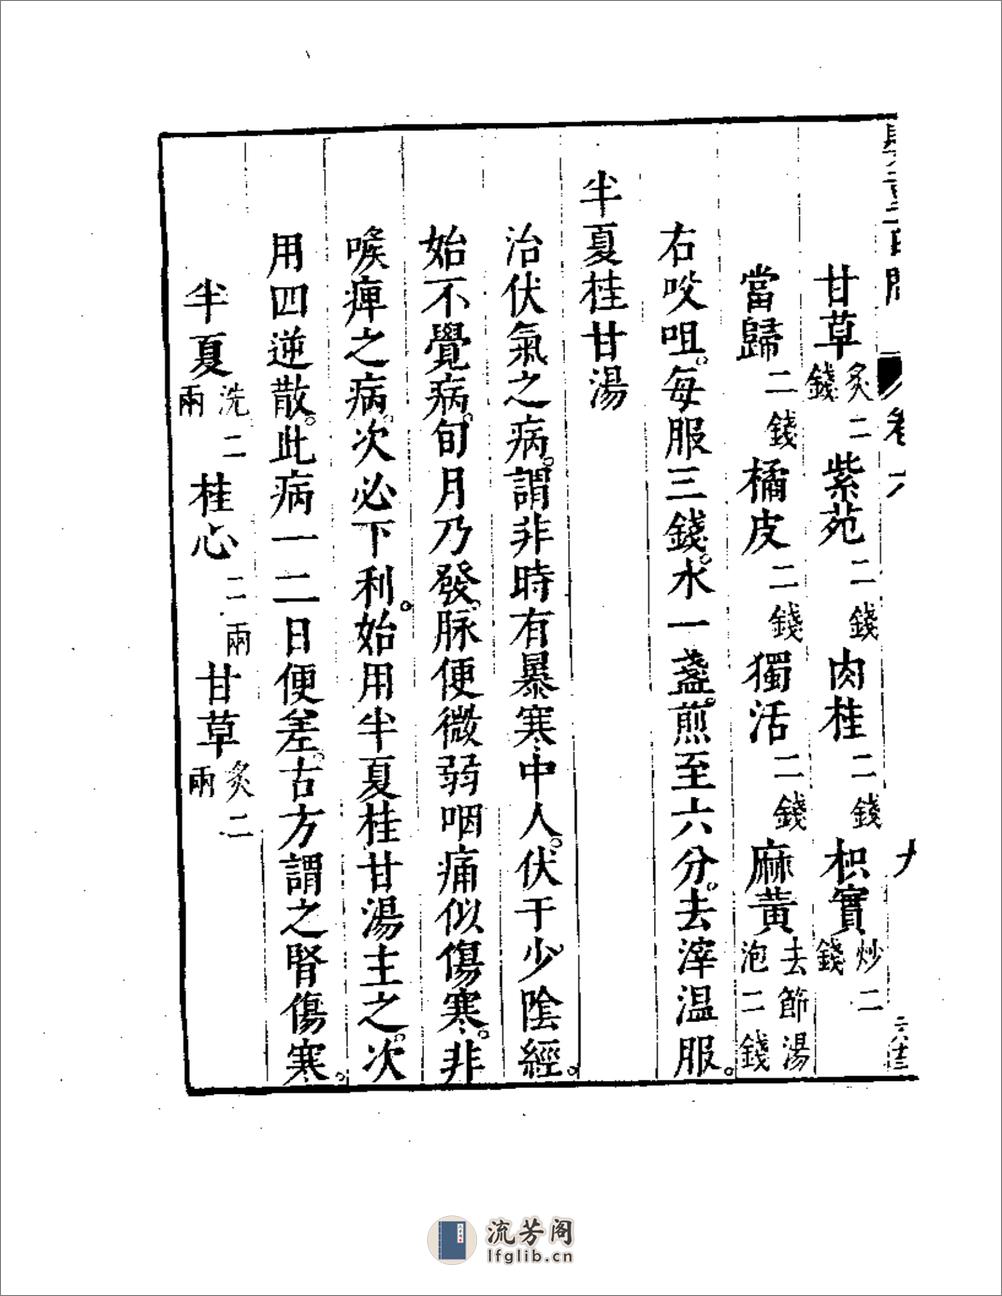 卷六
九
甘草炙二錢紫苑二錢肉桂二錢枳實炒二錢
當歸二錢橘皮二錢獨活二錢麻黃去節湯泡二錢
右㕮咀。每服三錢。水一盞。煎至六分。去滓溫服。
半夏桂甘湯
治伏氣之病。謂非時有暴寒中人。伏于少陰經。
始不覺病。旬月乃發。脉便微弱咽痛似傷寒。非
喉痺之病。次必下利。始用半夏桂甘湯主之。次
用四逆散。此病一二日便差。古方謂之腎傷寒。
半夏洗二兩桂心二兩甘草炙二兩
流芳阁
lfglib.cn